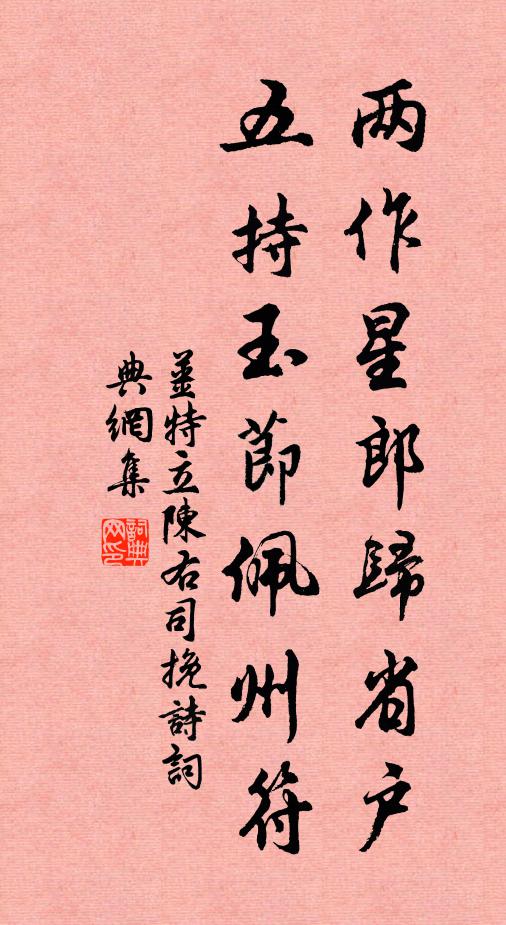 两作星郎歸省户
五持玉節佩州符
姜特立陳右司挽詩詞
典網集
詞典網印